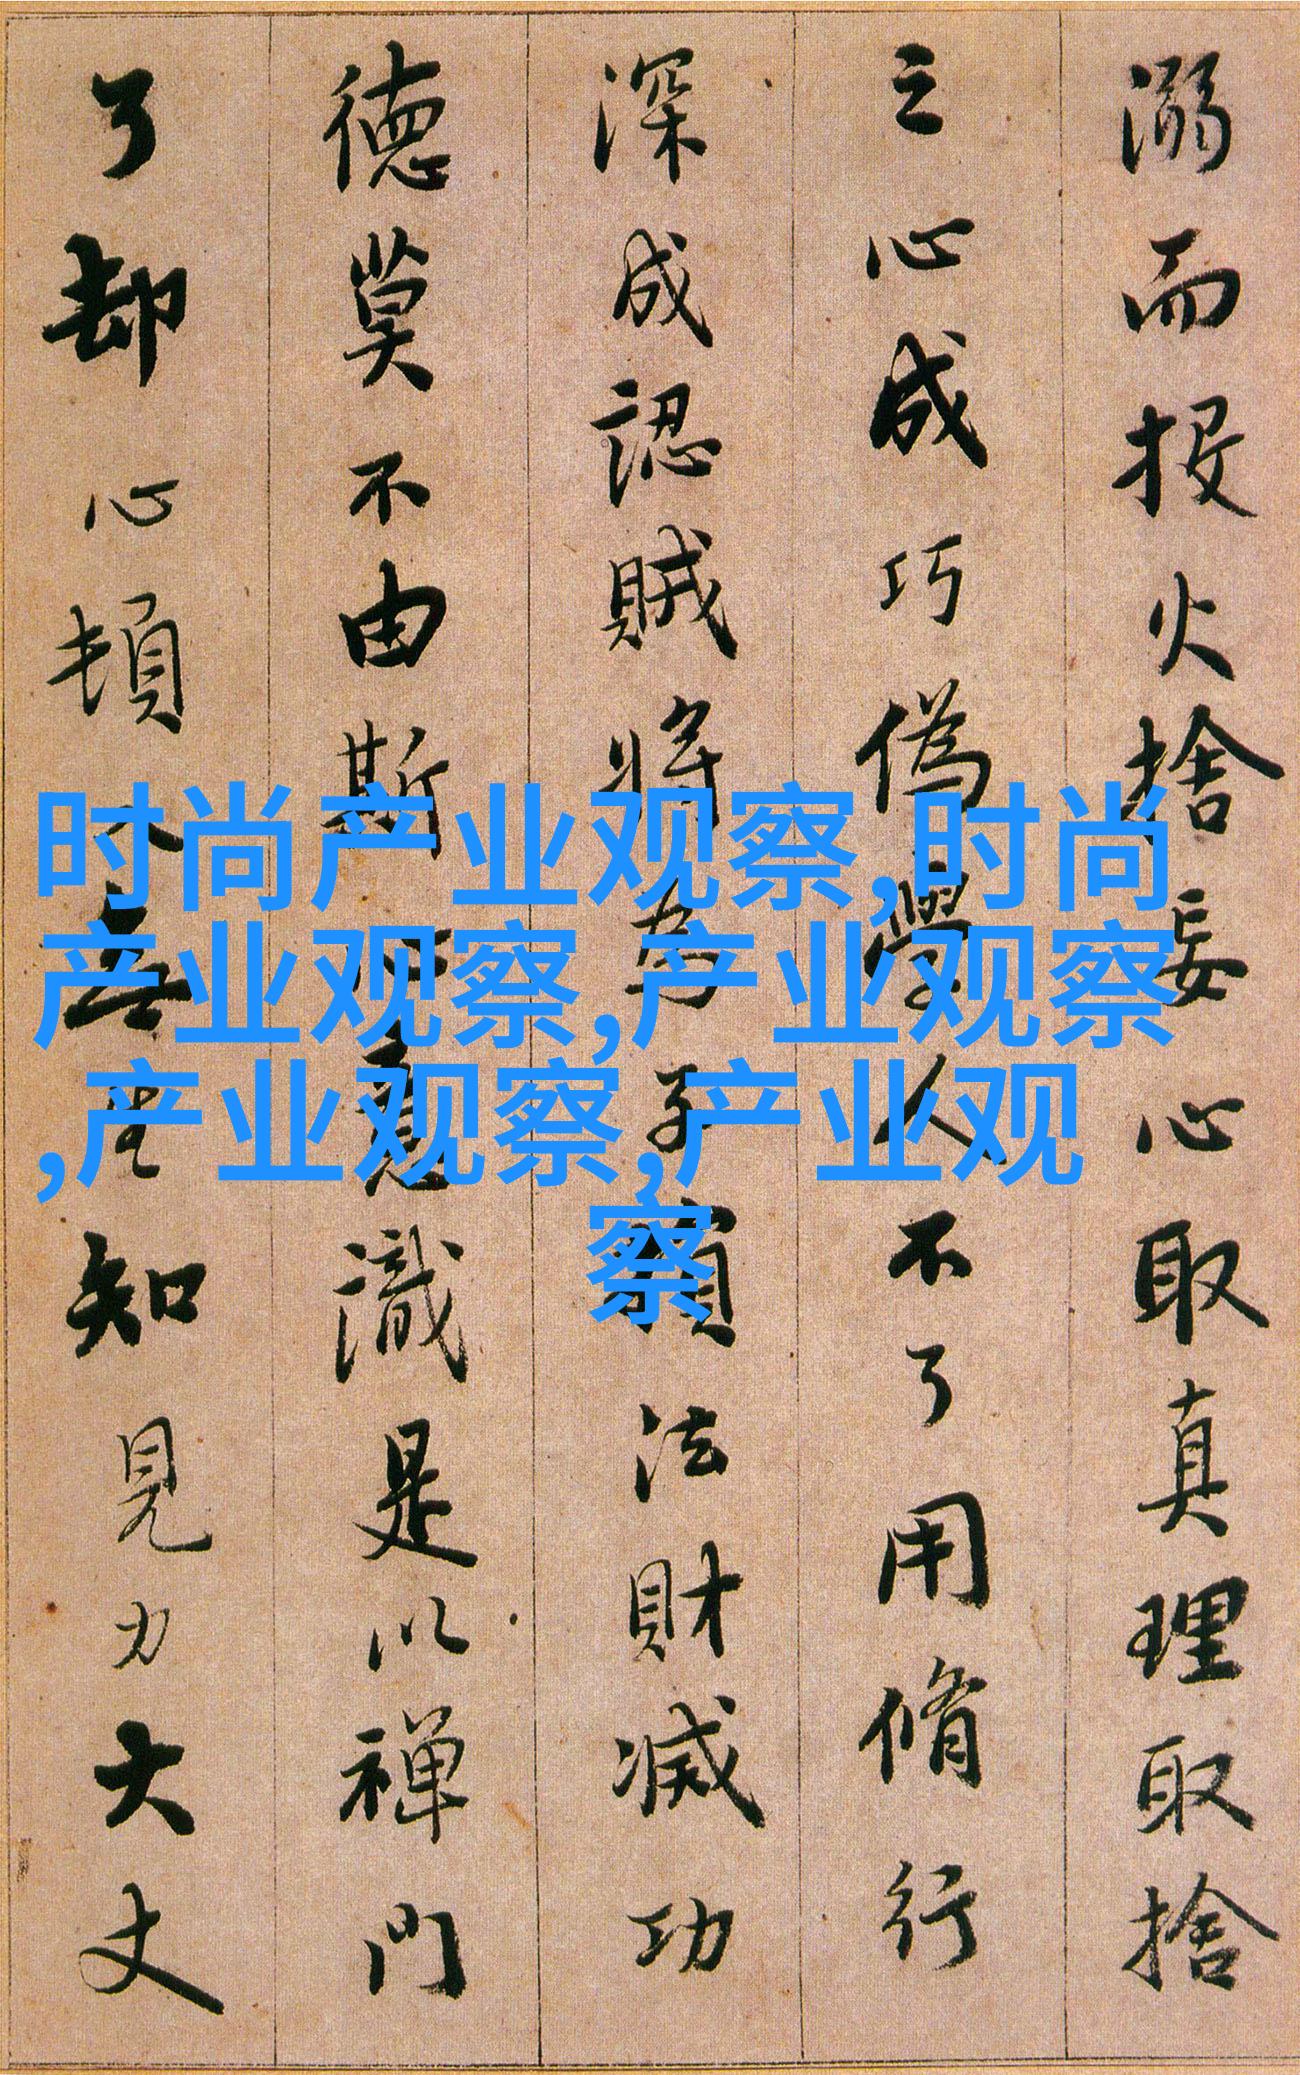 溺而投火捨妄心取真理取捨
之心成巧偽學人不了用脩行
深成認賊將為子損法財滅功
德莫不由斯心意識是以禪門
了却心頓入無生知見力大丈
时尚产业观察,时尚
产业观察,产业观察
,产业观察,产业观
察